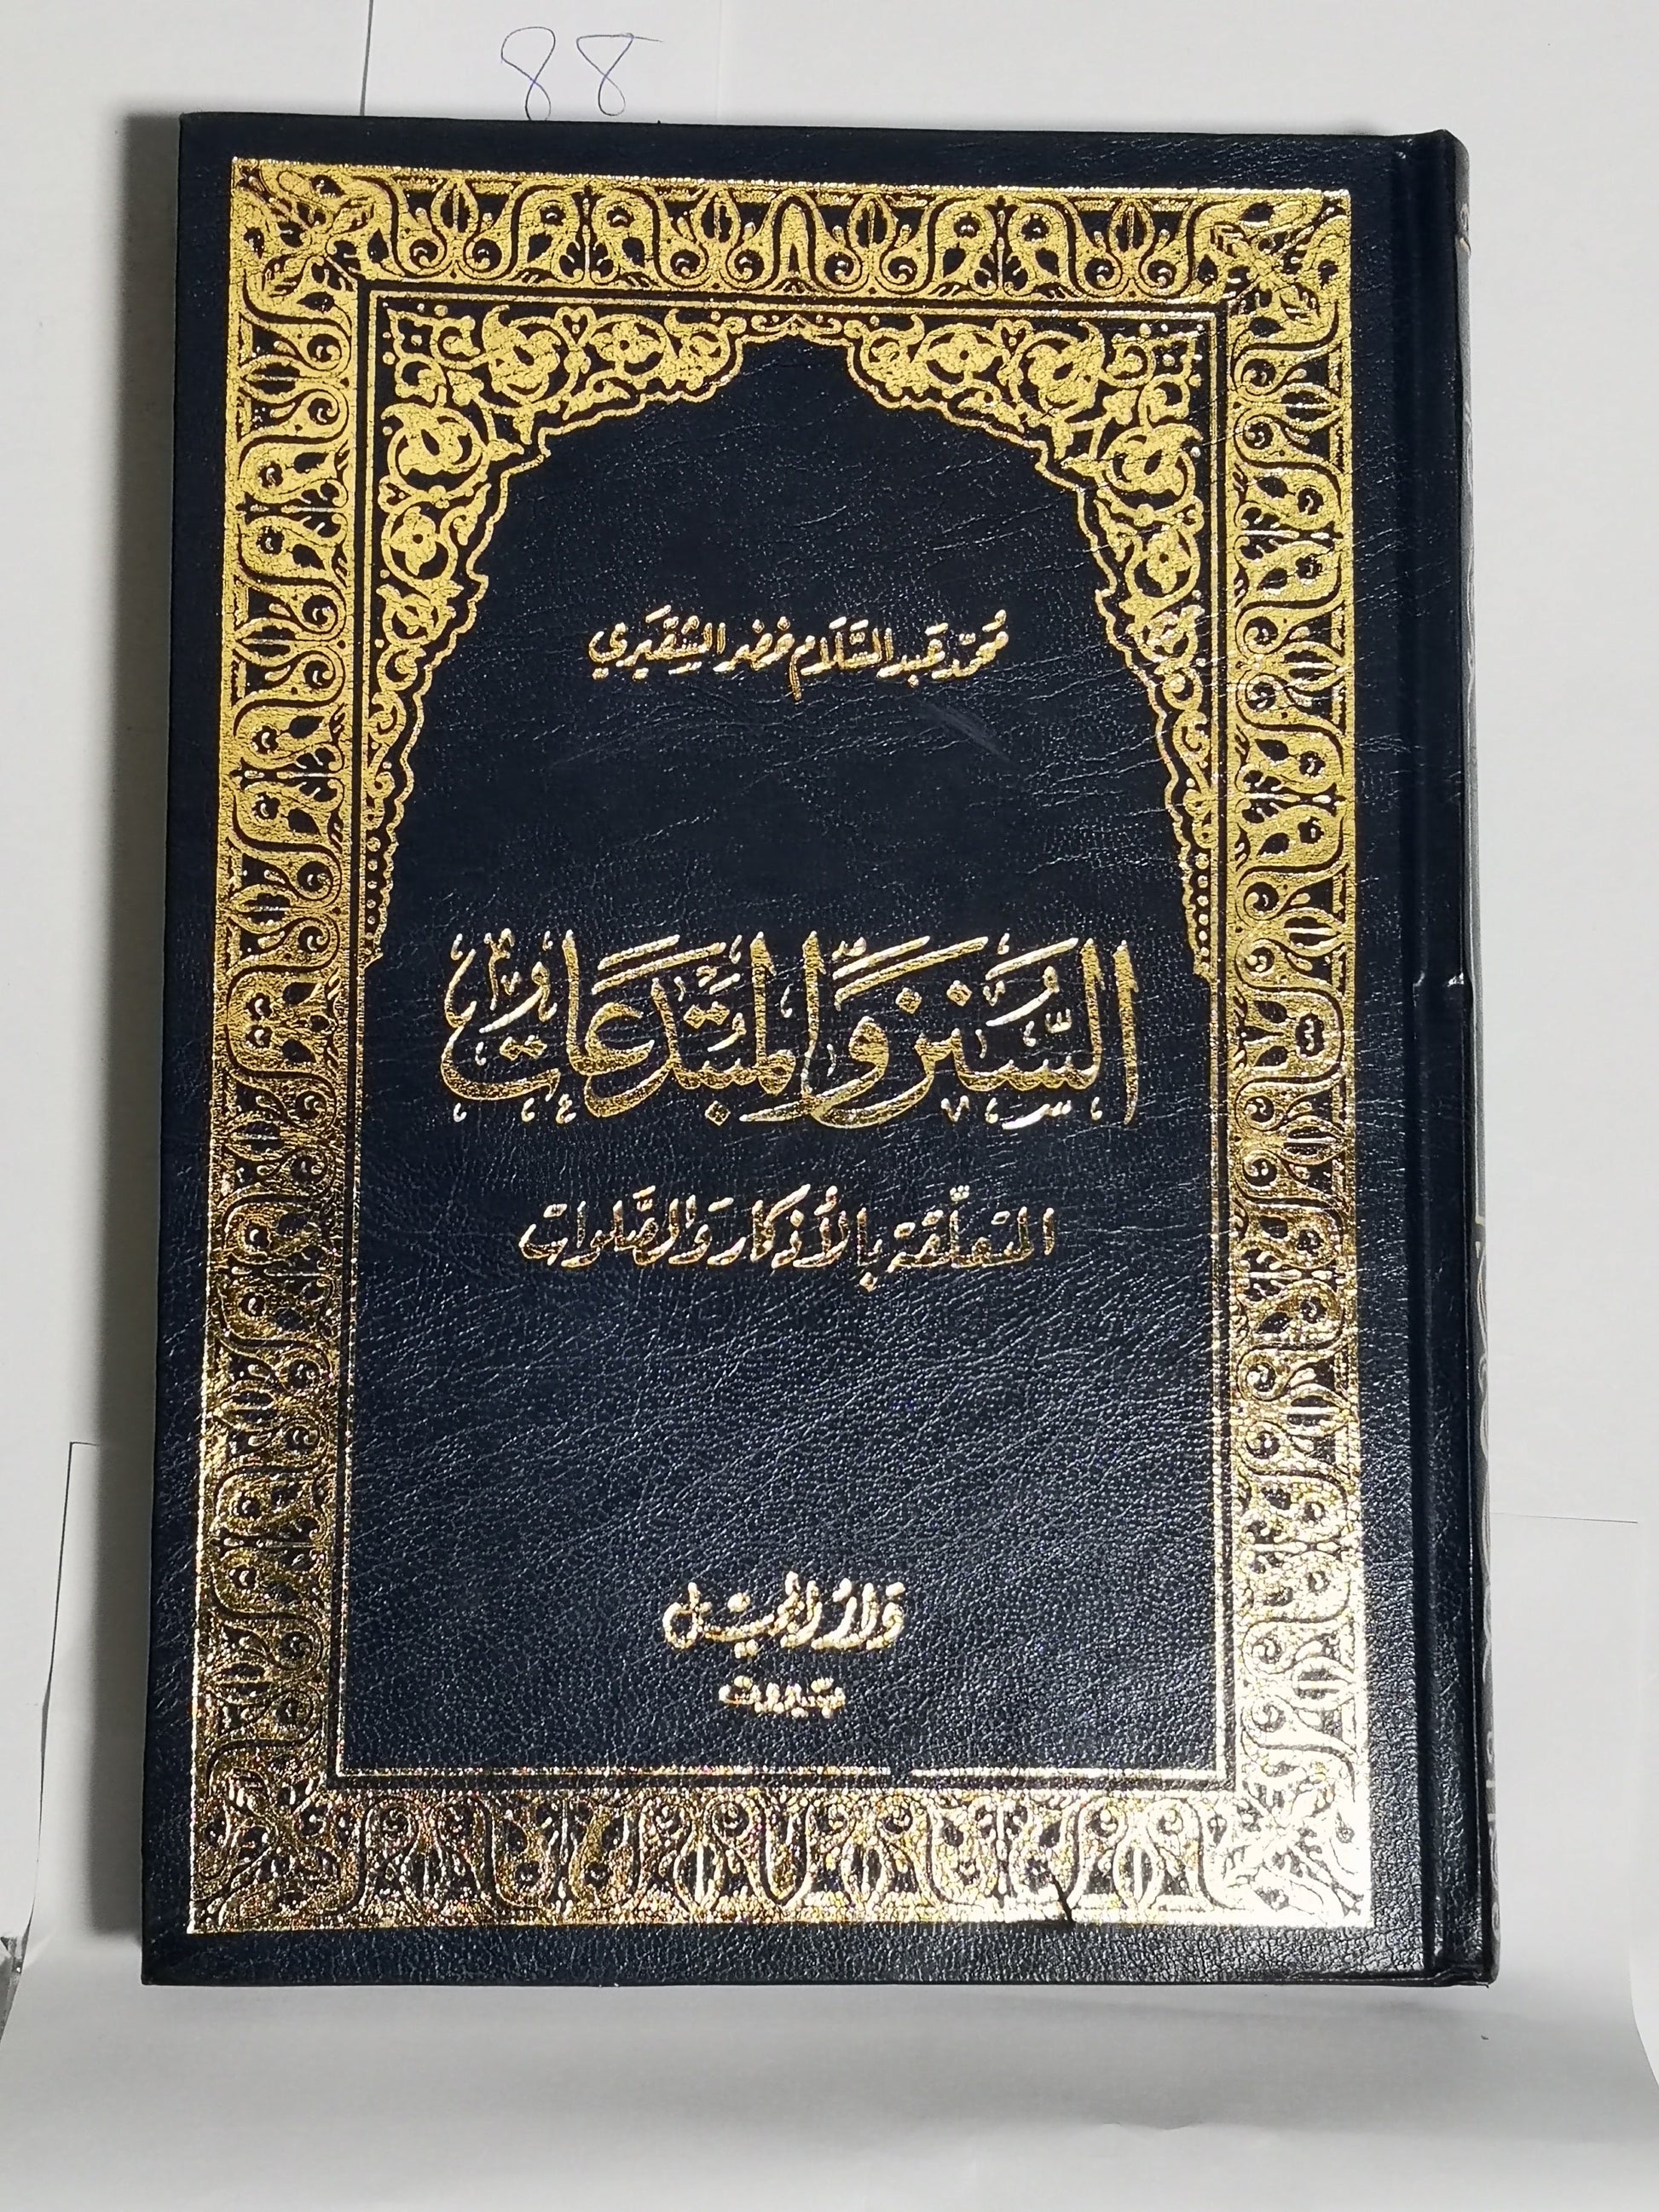 88
محمد عبد السلام خضر الشقيري
السنن والمبتدعات
المتعلقة بالأذكار والصلوات
دار الجيل
بيروت